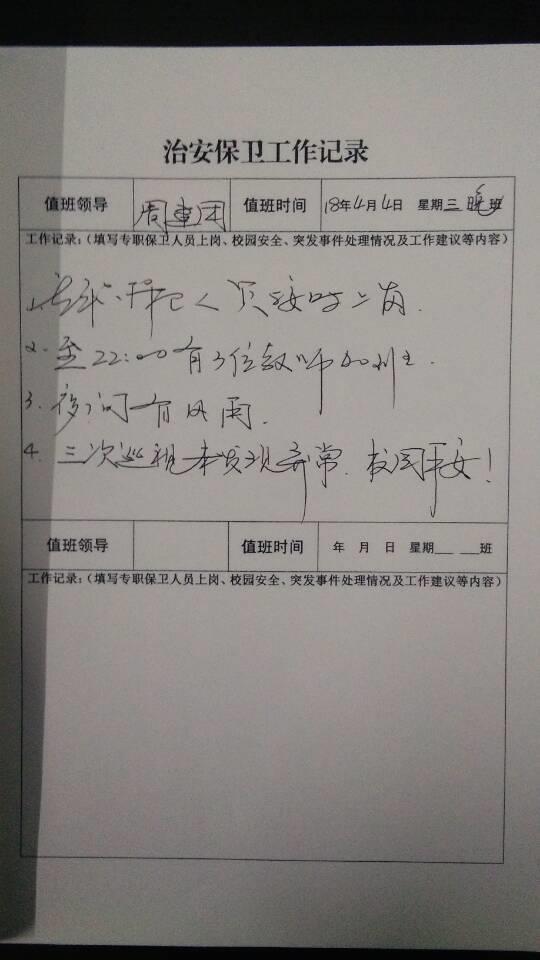 治安保卫工作记录
值班领导 周 值班时间 18年4月4日 星期三 晚班
工作记录:(填写专职保卫人员上岗、校园安全、突发事件处理情况及工作建议等内容)
1. 人员按时上岗.
2. 至22:00有3位教师加班.
3. 夜间有风雨.
4. 三次巡视未发现异常.校园平安!
值班领导 值班时间 年 月 日 星期___ ___班
工作记录:(填写专职保卫人员上岗、校园安全、突发事件处理情况及工作建议等内容)